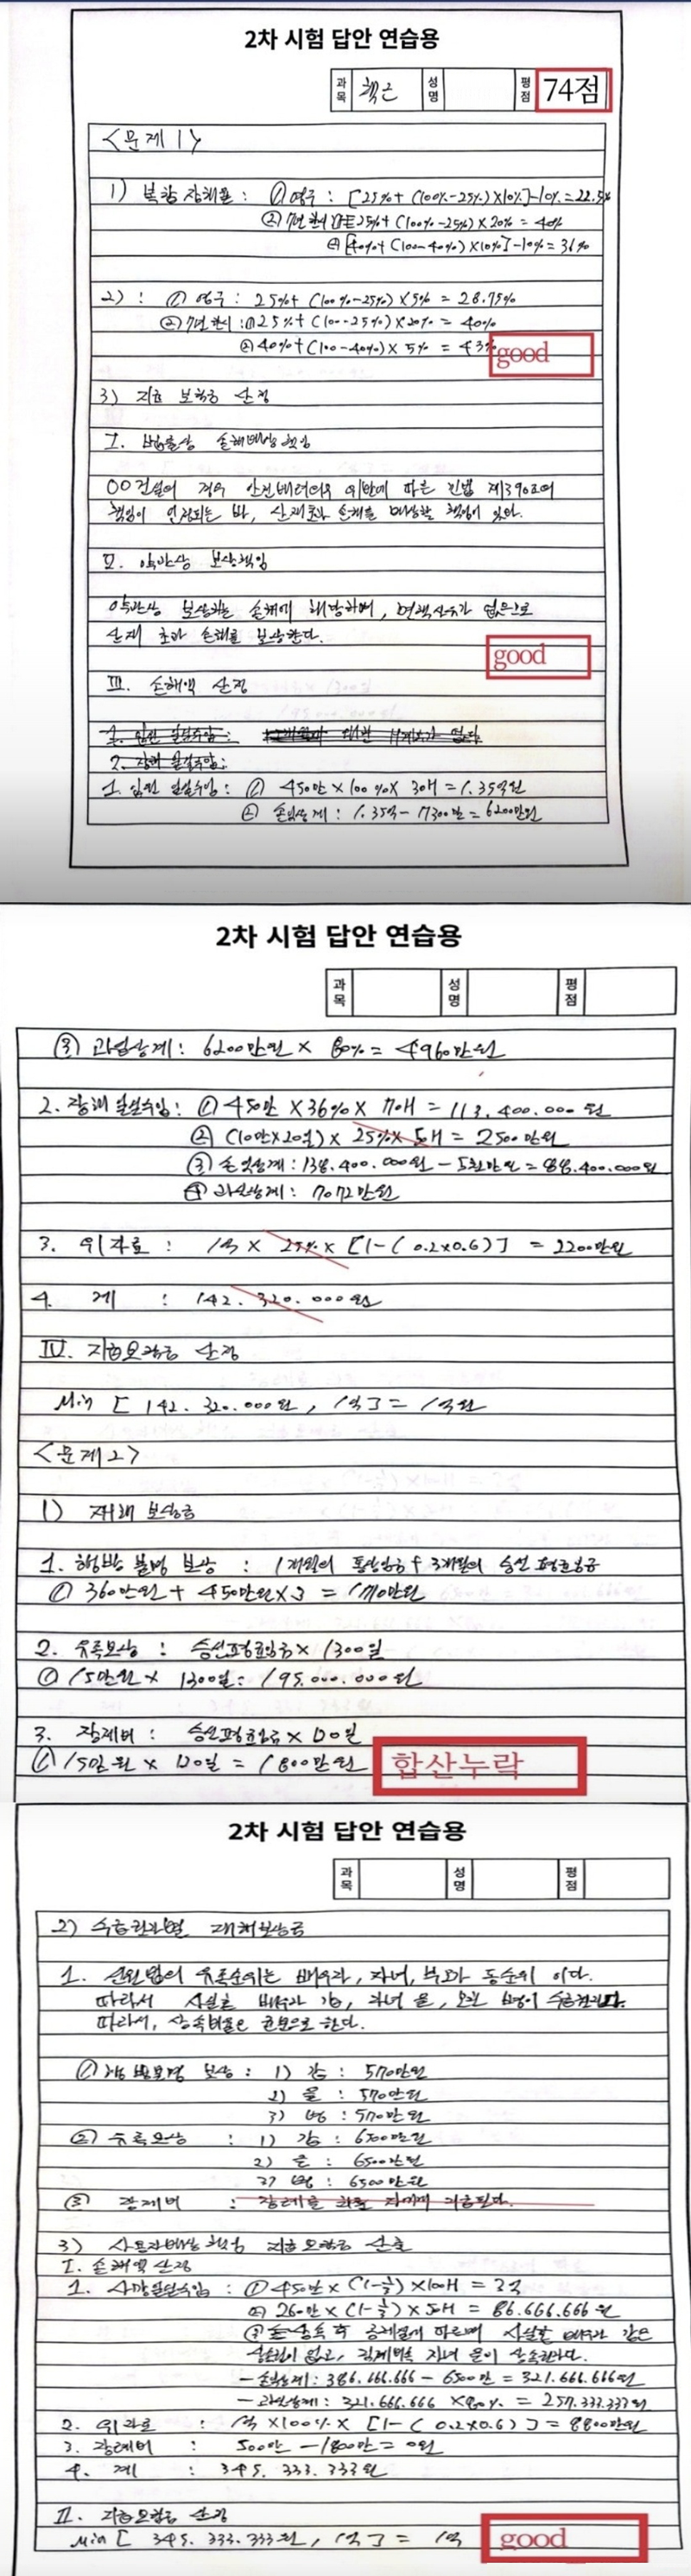 2차 시험 답안 연습용
과목 책근 성명 평점 74점
<문제 1>
1) 복합 장해율 : ① 영구 : [25%+ (100%-25%)×10%]-10% = 22.5%
② 7년 한시 25%+ (100%-25%) × 20% = 40%
[40%+ (100-40%)×10%]-10% = 36%
2) : ① 영구 : 25%+ (100%-25%)×5% = 28.75%
② 7년 한시 : ① 25%+ (100-25%)×20% = 40%
② 40%+(100-40%) × 5% = 43%
good
3) 지급 보험금 산정
I. 법률상 손해배상책임
OO건설의 경우 안전배려의무 위반에 따른 민법 제390조의
책임이 인정되는 바, 산재초과 손해를 배상할 책임이 있다.
II. 약관상 보상책임
약관상 보상하는 손해에 해당하며, 면책사유가 없으므로
산재 초과 손해를 보상한다.
good
III. 손해액 산정
1. 입원 일실수입 :
2. 장해 일실수입 :
1. 입원 일실수입 : ① 450만 × 100% × 30H = 1.35억원
② 손익상계 : 1.35억 - 7300만 = 6200만원
2차 시험 답안 연습용
과목 성명 평점
③ 과실상계 : 6200만원 × 80% = 4960만원
2. 장해일실수입 : ① 450만 × 36% × 70H = 113.400.000원
② (10만×20일) × 25% × 50H = 2500만원
③ 손익상계 : 138.400.000원 - 5천만원 = 88.400.000원
④ 과실상계 : 7072만원
3. 위자료 : 1억 × 25% × [1-(0.2×0.6)] = 2200만원
4. 계 : 142.320.000원
IV. 지급보험금 산정
Min [ 142.320.000원, 1억 ] = 1억원
<문제 2>
1) 재해 보상금
1. 행방 불명 보상 : 1개월의 통상임금 + 3개월의 승선 평균임금
① 360만원 + 450만원×3 = 1710만원
2. 유족보상 : 승선평균임금 × 1300일
① 15만원 × 1300일 = 195.000.000원
3. 장제비 : 승선평균임금 × 120일
① 15만원 × 120일 = 1800만원
합산누락
2차 시험 답안 연습용
과목 성명 평점
2) 수급권자별 재해보상금
1. 선원법의 유족순위는 배우자, 자녀, 부모가 동순위 이다.
따라서 사실혼 배우자 갑, 자녀 을, 모친 병이 수급권자다.
따라서, 상속비율은 균분으로 한다.
① 행방불명 보상 : 1) 갑 : 570만원
2) 을 : 570만원
3) 병 : 570만원
② 유족보상 : 1) 갑 : 6500만원
2) 을 : 6500만원
3) 병 : 6500만원
③ 장제비 : 장례를 치를 자에게 지급된다.
3) 사용자배상책임 지급보험금 산출
I. 손해액 산정
1. 사망일실수입 : ① 450만 × (1-⅓) × 100H = 3억
② 260만 × (1-⅓) × 50H = 86.666.666원
③ 상속 후 공제설에 따르며 사실혼 배우자 갑은
상속권이 없고, 직계비속 자녀 을이 상속한다.
- 손익상계 : 386.666.666 - 6500만 = 321.666.666원
- 과실상계 : 321.666.666 ×80% = 257.333.333원
2. 위자료 : 1억 ×100% × [1-(0.2×0.6)] = 8800만원
3. 장례비 : 500만 - 1800만 = 0원
4. 계 : 345.333.333원
II. 지급보험금 산정
Min [ 345.333.333원, 1억 ] = 1억
good